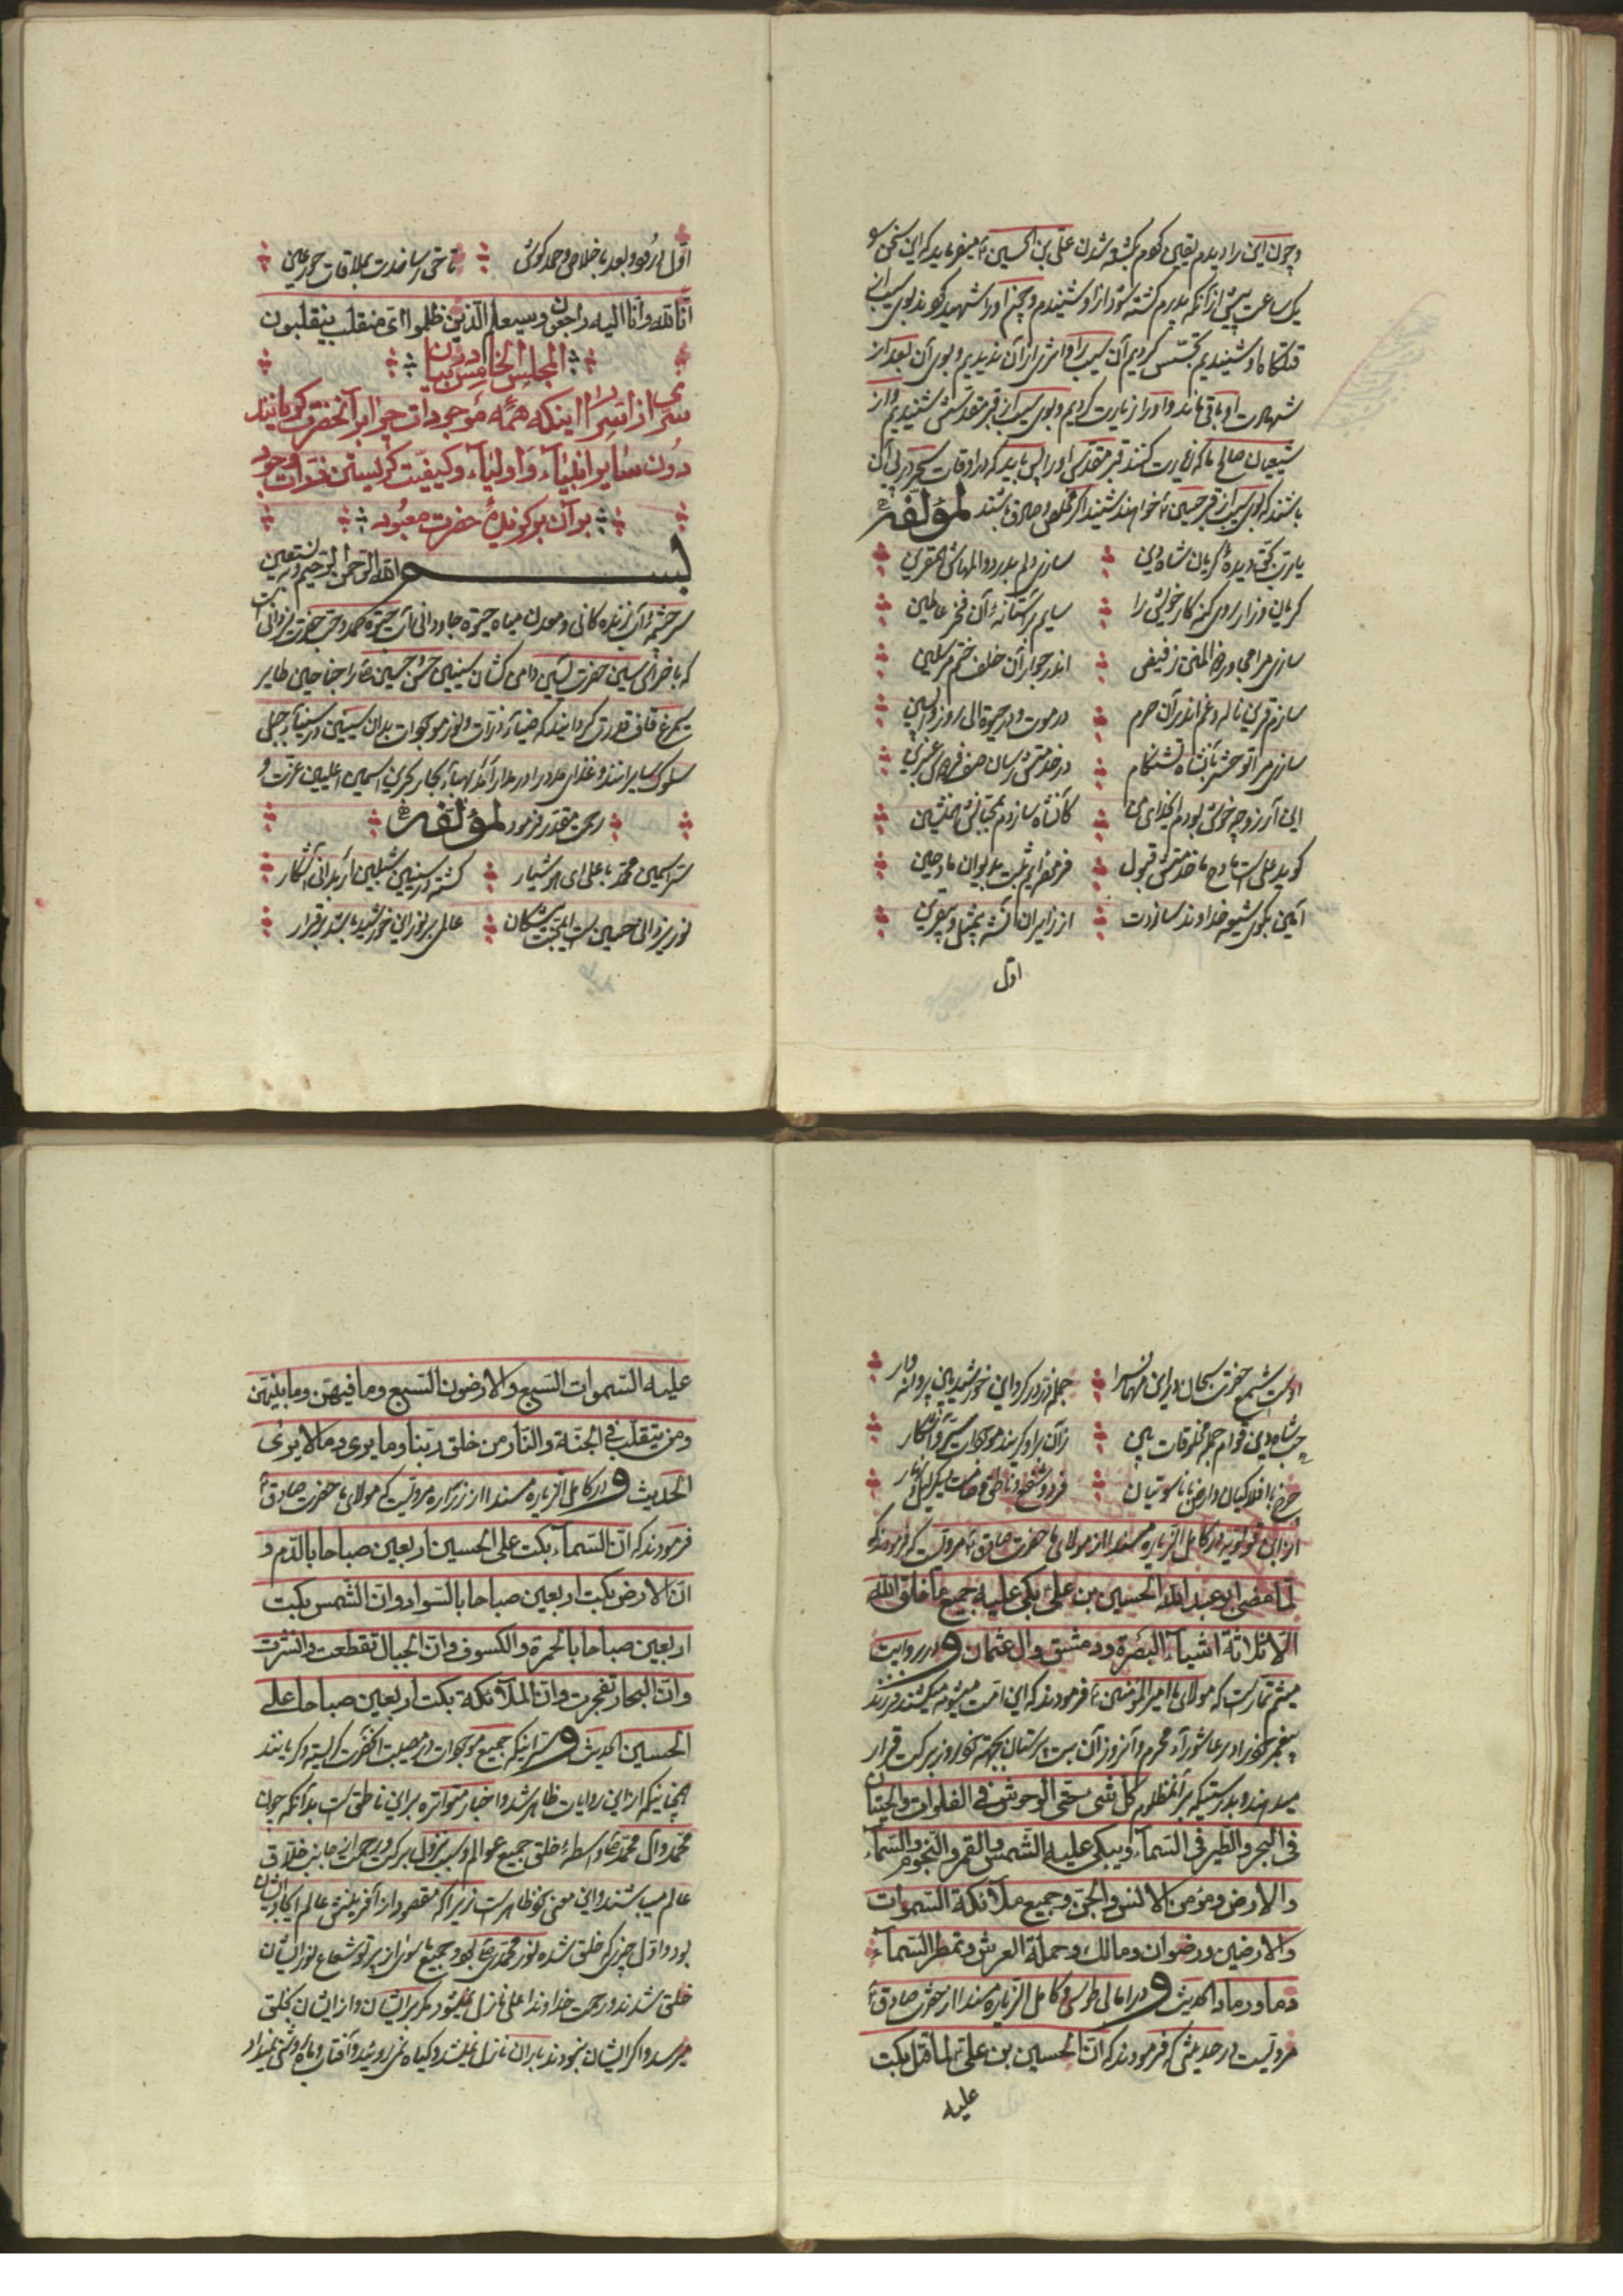 وچون این را دیدم یقین کردم بکشته شدن علی بن الحسین ع میفرماید که این سخن
یک ساعت پیش از آنکه پدرم کشته شود از او شنیدم و چون او را شهید کردند بوی سیب از
قتلگاه او شنیدیم تجسس کردیم آن سیب را و اثری از آن ندیدیم و بوی آن بعد از
شهادت او باقی ماند و او را زیارت کردیم و بوی سیب از قبر مقدسش شنیدیم و از
شیعیان صالح ما که زیارت کنند قبر مقدس او را پس باید که در اوقات سحر در پی آن
باشند که بوی سیب از قبر حسین ع خواهند شنید اگر مخلص و صادق باشند لمؤلفه
یا رب بحق دیده گریان شاه دین سازی دلم بدرد و المهاش هم قرین
گریان و زار روی کنم کار خویش را سایم بر آستانه آن فخر عالمین
سازی مرا مجاور ذالمنن ز فیض اندر جوار آن خلف ختم مرسلین
سازم قرین ناله و غم اندر آن حرم در موت و در حیوة الی روز واپسین
سازی مرا تو حشر بآن شاه تشنه کام در خدمتش رسان
این آرزو چه خوش بودم
گوید علی است مادح ما خدمتش قبول
آمین بگوی شیعه خداوند سازدت از زایران
اول
اول رؤف و بعد باخلاص و حمد گوش تا حق رساندت بملاقات حور عین
انا لله وانا الیه راجعون وسیعلم الذین ظلموا ای منقلب ینقلبون
المجلس الخامس در بیان
سری از اسرار اینکه همه موجودات چرا بر آنحضرت گریانند
دون سایر انبیاء و اولیاء و کیفیت گریستن ذرات وجود
بر آن برگزیدهٔ حضرت معبود
بسم الله الرحمن الرحیم وبه نستعین
سر چشمه آب زنده کانی و معدن میاه حیوة جاودانی حمد و حب حضرت یزدانی است
که با خرانی
سیمرغ قاف قدرت گردانید که ضیاء ذرات و نور موجودات بدان
سلوک
رحمت مقدر فرمود لمؤلفه
سر اسمین محمد با علی ای هوشیار گشته در سینین
نور یزدانی حسین است عالمی بر نور این خورشید باشد برقرار
اوست شمع حضرت سبحان در این مهمانسرا جمله ذرات گرد این خورشید دین پروانه وار
حب شاه دین قوام جمله مخلوقات بین زآن بر او گریند موجودات سر و آشکار
از ابن قولویه در کامل الزیاره مسندا از مولای ما حضرت صادق ع مرویست که فرمودند که
لما مضی ابو عبدالله الحسین بن علی بکی علیه جمیع ما خلق الله
الا ثلاثة اشیاء البصرة ودمشق وال عثمان و در روایت
میثم تمار است که مولای ما امیر المؤمنین ع فرمودند که این امت میشومه میکشند فرزند
پیغمبر خود را در عاشوراء محرم و آنروز آن بت پرستان بجهة خود روز برکت قرار
میدهند و بدرستیکه بر آنمظلوم کل شیء حتی الوحوش فی الفلوات والحیتان
فی البحر والطیر فی السماء ویبکی علیه الشمس والقمر والنجوم والسماء
والارض ومؤمن الانس والجن وجمیع ملائکة السموات
والارضین ورضوان ومالک وحملة العرش وتمطر السماء
دما ورمادا الحدیث و در امالی طوسی و کامل الزیاره مسندا از حضرت صادق ع
مرویست در حدیثی که فرمودند که ان الحسین بن علی لما قتل بکت
علیه
علیه السموات السبع والارضون السبع وما فیهن وما بینهن
ومن یتقلب فی الجنة والنار من خلق ربنا وما یری وما لا یری
الحدیث و در کامل الزیاره مسندا از زراره مرویست که مولای ما حضرت صادق ع
فرمودند که ان السماء بکت علی الحسین اربعین صباحا بالدم و
ان الارض بکت اربعین صباحا بالسواد وان الشمس بکت
اربعین صباحا بالحمرة والکسوف وان الجبال تقطعت وانتثرت
وان البحار تفجرت وان الملائکة بکت اربعین صباحا علی
الحسین الحدیث و سر اینکه جمیع موجودات در مصیبت آنحضرت گریسته و گریانند
همچنانیکه از این روایات ظاهر شد و اخبار متواتره بر این ناطق است بدانکه چون
محمد وآل محمد واسطه خلق جمیع عوالم و سبب نزول برکت و رحمت از جانب خلاق
عالم میباشند و این معنی خود ظاهر است زیرا که مقصود از آفرینش عالم ایجاد ایشان
بود و اول چیزی که خلق شده نور محمدی بود و جمیع ماسوی از پرتو شعاع نور ایشان
خلق شدند و رحمت خداوند اعلی نازل نمیشود مگر بر ایشان و از ایشان بخلق
میرسد و اگر ایشان نبودند باران نازل نمیشد و گیاه نمیروئید و آفتاب و ماه روشنی نمیداد